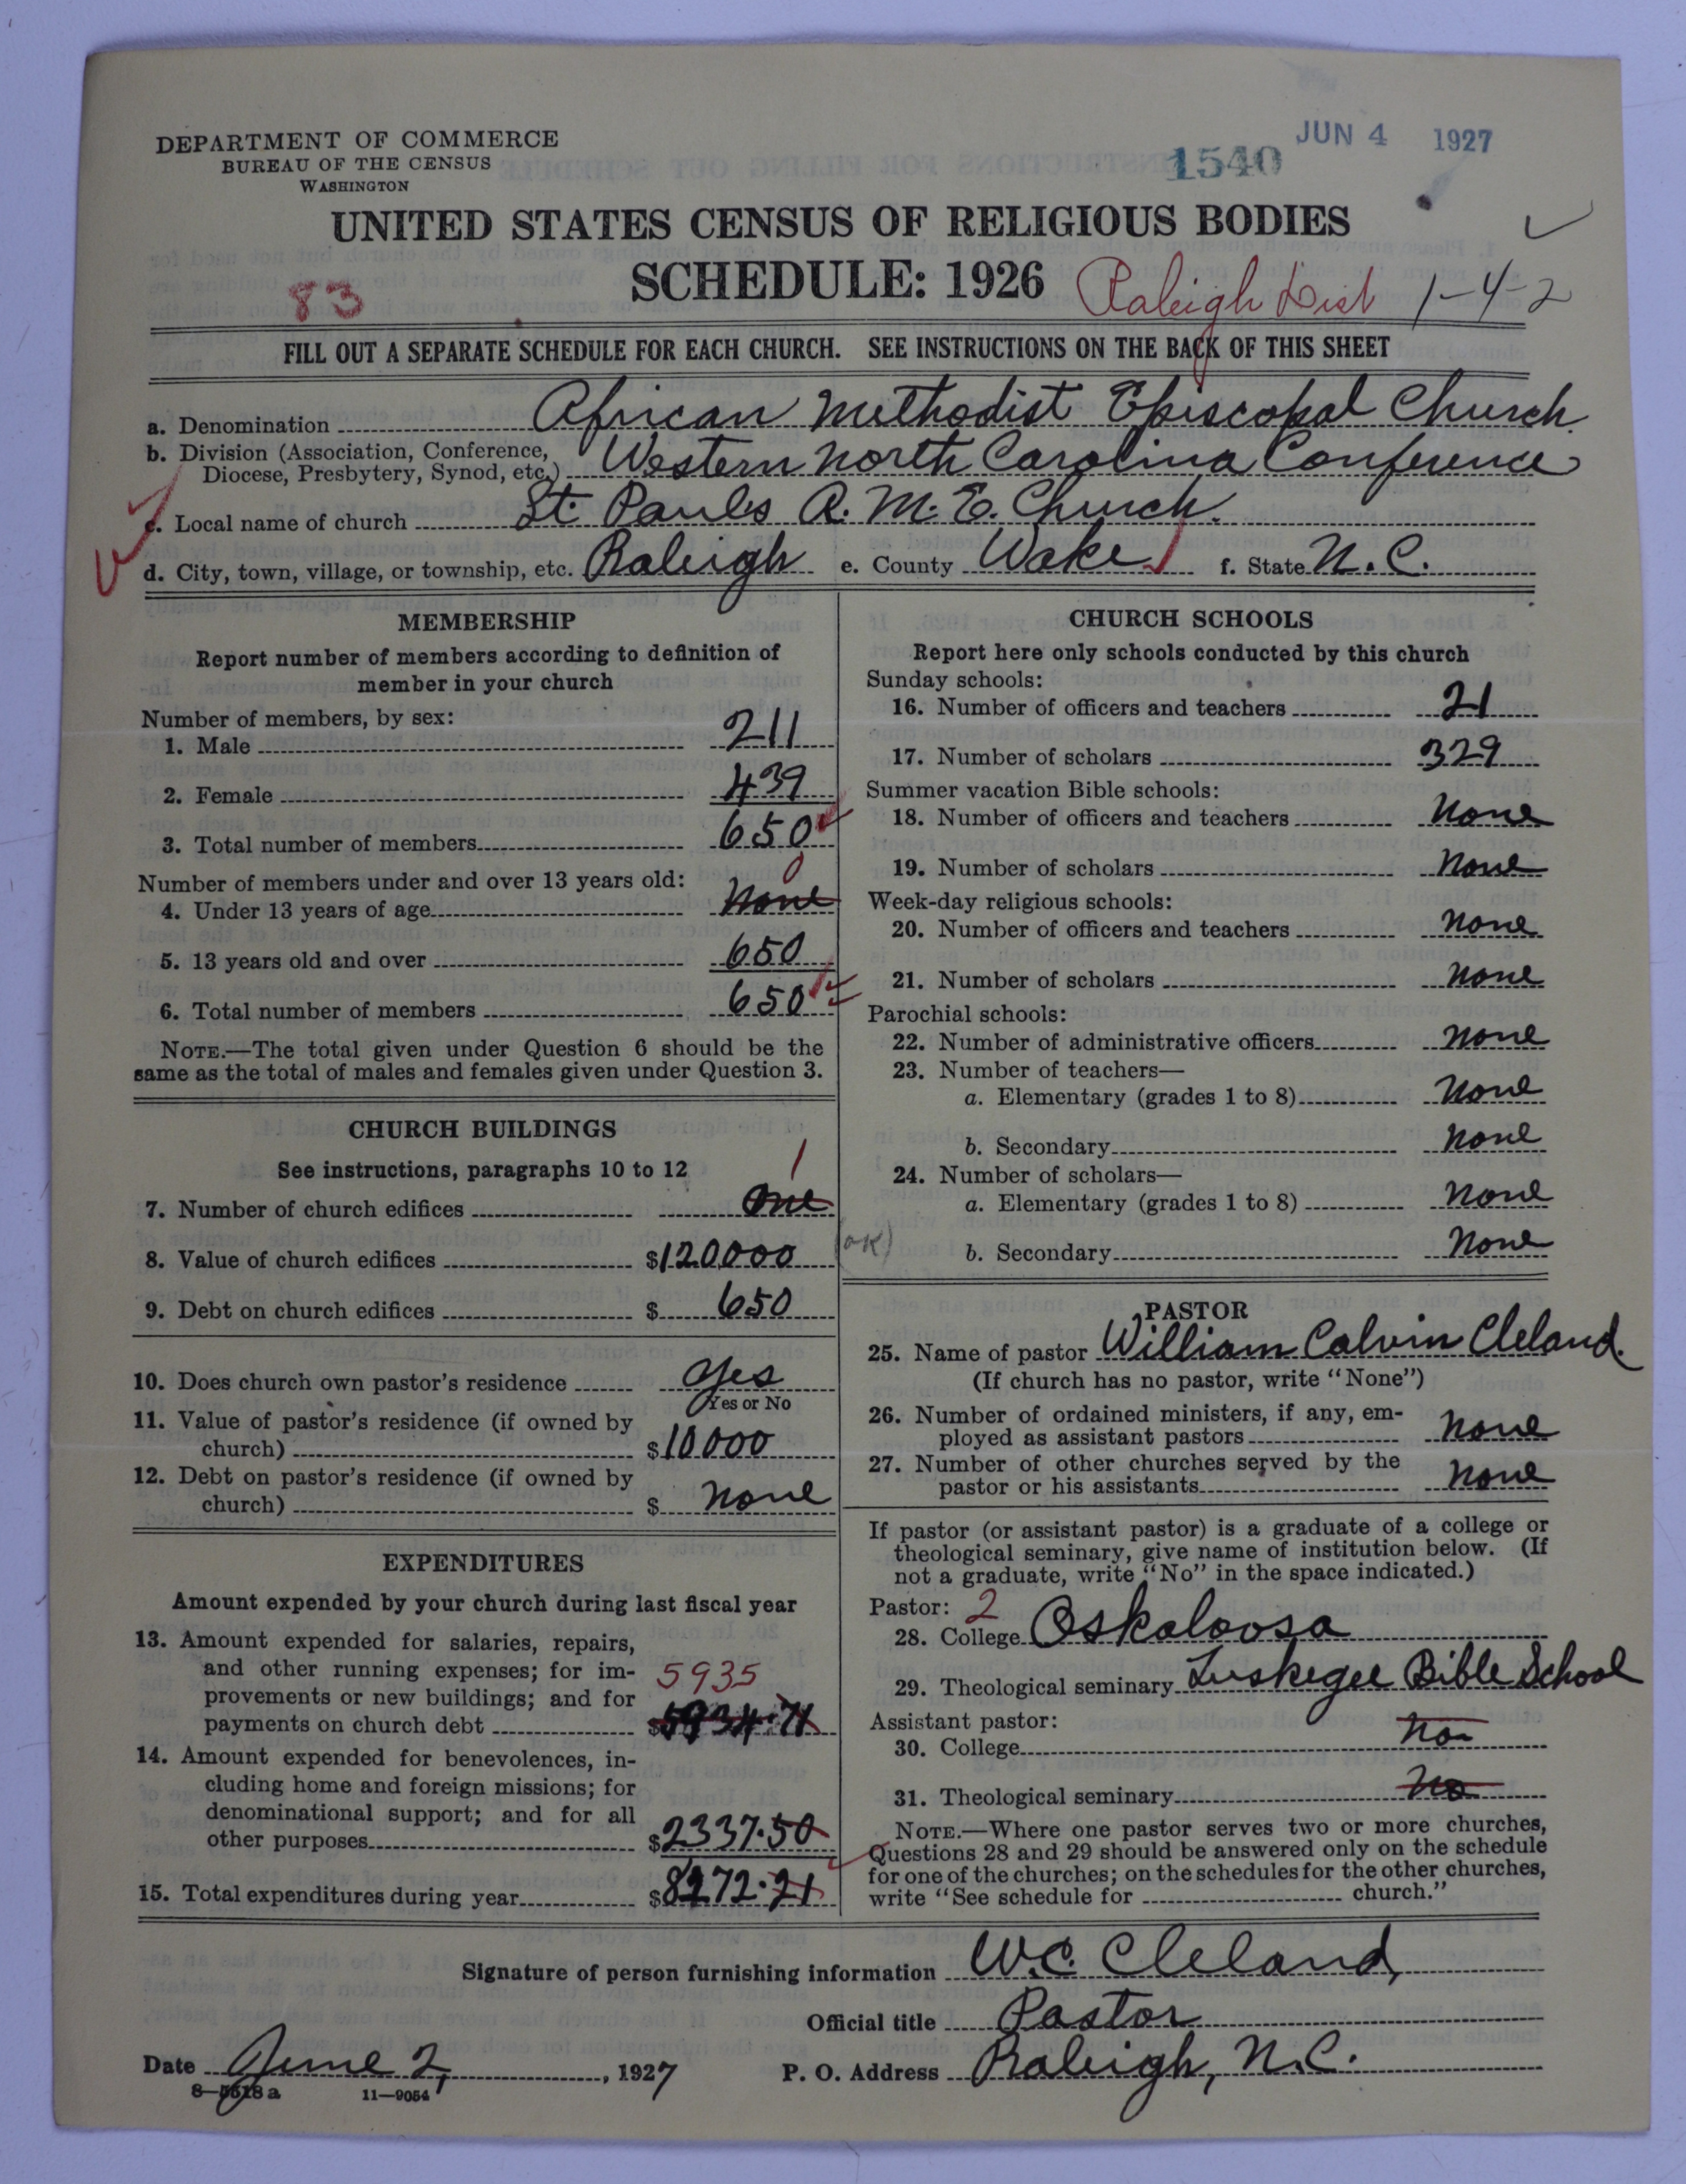 DEPARTMENT OF COMMERCE
BUREAU OF THE CENSUS
WASHINGTON
1540 JUN 4 1927
UNITED STATES CENSUS OF RELIGIOUS BODIES
SCHEDULE: 1926
83 Raleigh Dist 1-4-2
FILL OUT A SEPARATE SCHEDULE FOR EACH CHURCH. SEE INSTRUCTIONS ON THE BACK OF THIS SHEET
a. Denomination African Methodist Episcopal Church
b. Division (Association, Conference,
Diocese, Presbytery, Synod, etc.) Western North Carolina Conference
c. Local name of church St. Pauls A. M. E. Church.
d. City, town, village, or township, etc. Raleigh e. County Wake f. State N. C.
MEMBERSHIP
Report number of members according to definition of
member in your church
Number of members, by sex:
1. Male 211
2. Female 439
3. Total number of members 650
Number of members under and over 13 years old: 0
4. Under 13 years of age None
5. 13 years old and over 650
6. Total number of members 650
NOTE.—The total given under Question 6 should be the
same as the total of males and females given under Question 3.
CHURCH BUILDINGS
See instructions, paragraphs 10 to 12 1
7. Number of church edifices One
8. Value of church edifices $120000 (OK)
9. Debt on church edifices $ 650
10. Does church own pastor's residence Yes
Yes or No
11. Value of pastor's residence (if owned by
church) $10000
12. Debt on pastor's residence (if owned by
church) $ None
EXPENDITURES
Amount expended by your church during last fiscal year
13. Amount expended for salaries, repairs,
and other running expenses; for im- 5935
provements or new buildings; and for
payments on church debt $5934.71
14. Amount expended for benevolences, in-
cluding home and foreign missions; for
denominational support; and for all
other purposes $2337.50
15. Total expenditures during year $8272.21
CHURCH SCHOOLS
Report here only schools conducted by this church
Sunday schools:
16. Number of officers and teachers 21
17. Number of scholars 329
Summer vacation Bible schools:
18. Number of officers and teachers None
19. Number of scholars None
Week-day religious schools:
20. Number of officers and teachers None
21. Number of scholars None
Parochial schools:
22. Number of administrative officers None
23. Number of teachers—
a. Elementary (grades 1 to 8) None
b. Secondary None
24. Number of scholars—
a. Elementary (grades 1 to 8) None
b. Secondary None
PASTOR
25. Name of pastor William Calvin Cleland.
(If church has no pastor, write "None")
26. Number of ordained ministers, if any, em-
ployed as assistant pastors None
27. Number of other churches served by the
pastor or his assistants None
If pastor (or assistant pastor) is a graduate of a college or
theological seminary, give name of institution below. (If
not a graduate, write "No" in the space indicated.)
Pastor: 2
28. College Oskaloosa
29. Theological seminary Tuskegee Bible School
Assistant pastor:
30. College No
31. Theological seminary No
NOTE.—Where one pastor serves two or more churches,
Questions 28 and 29 should be answered only on the schedule
for one of the churches; on the schedules for the other churches,
write "See schedule for church."
Signature of person furnishing information W.C. Cleland,
Official title Pastor
Date June 2, 1927 P. O. Address Raleigh, N.C.
8—5518a 11—9054